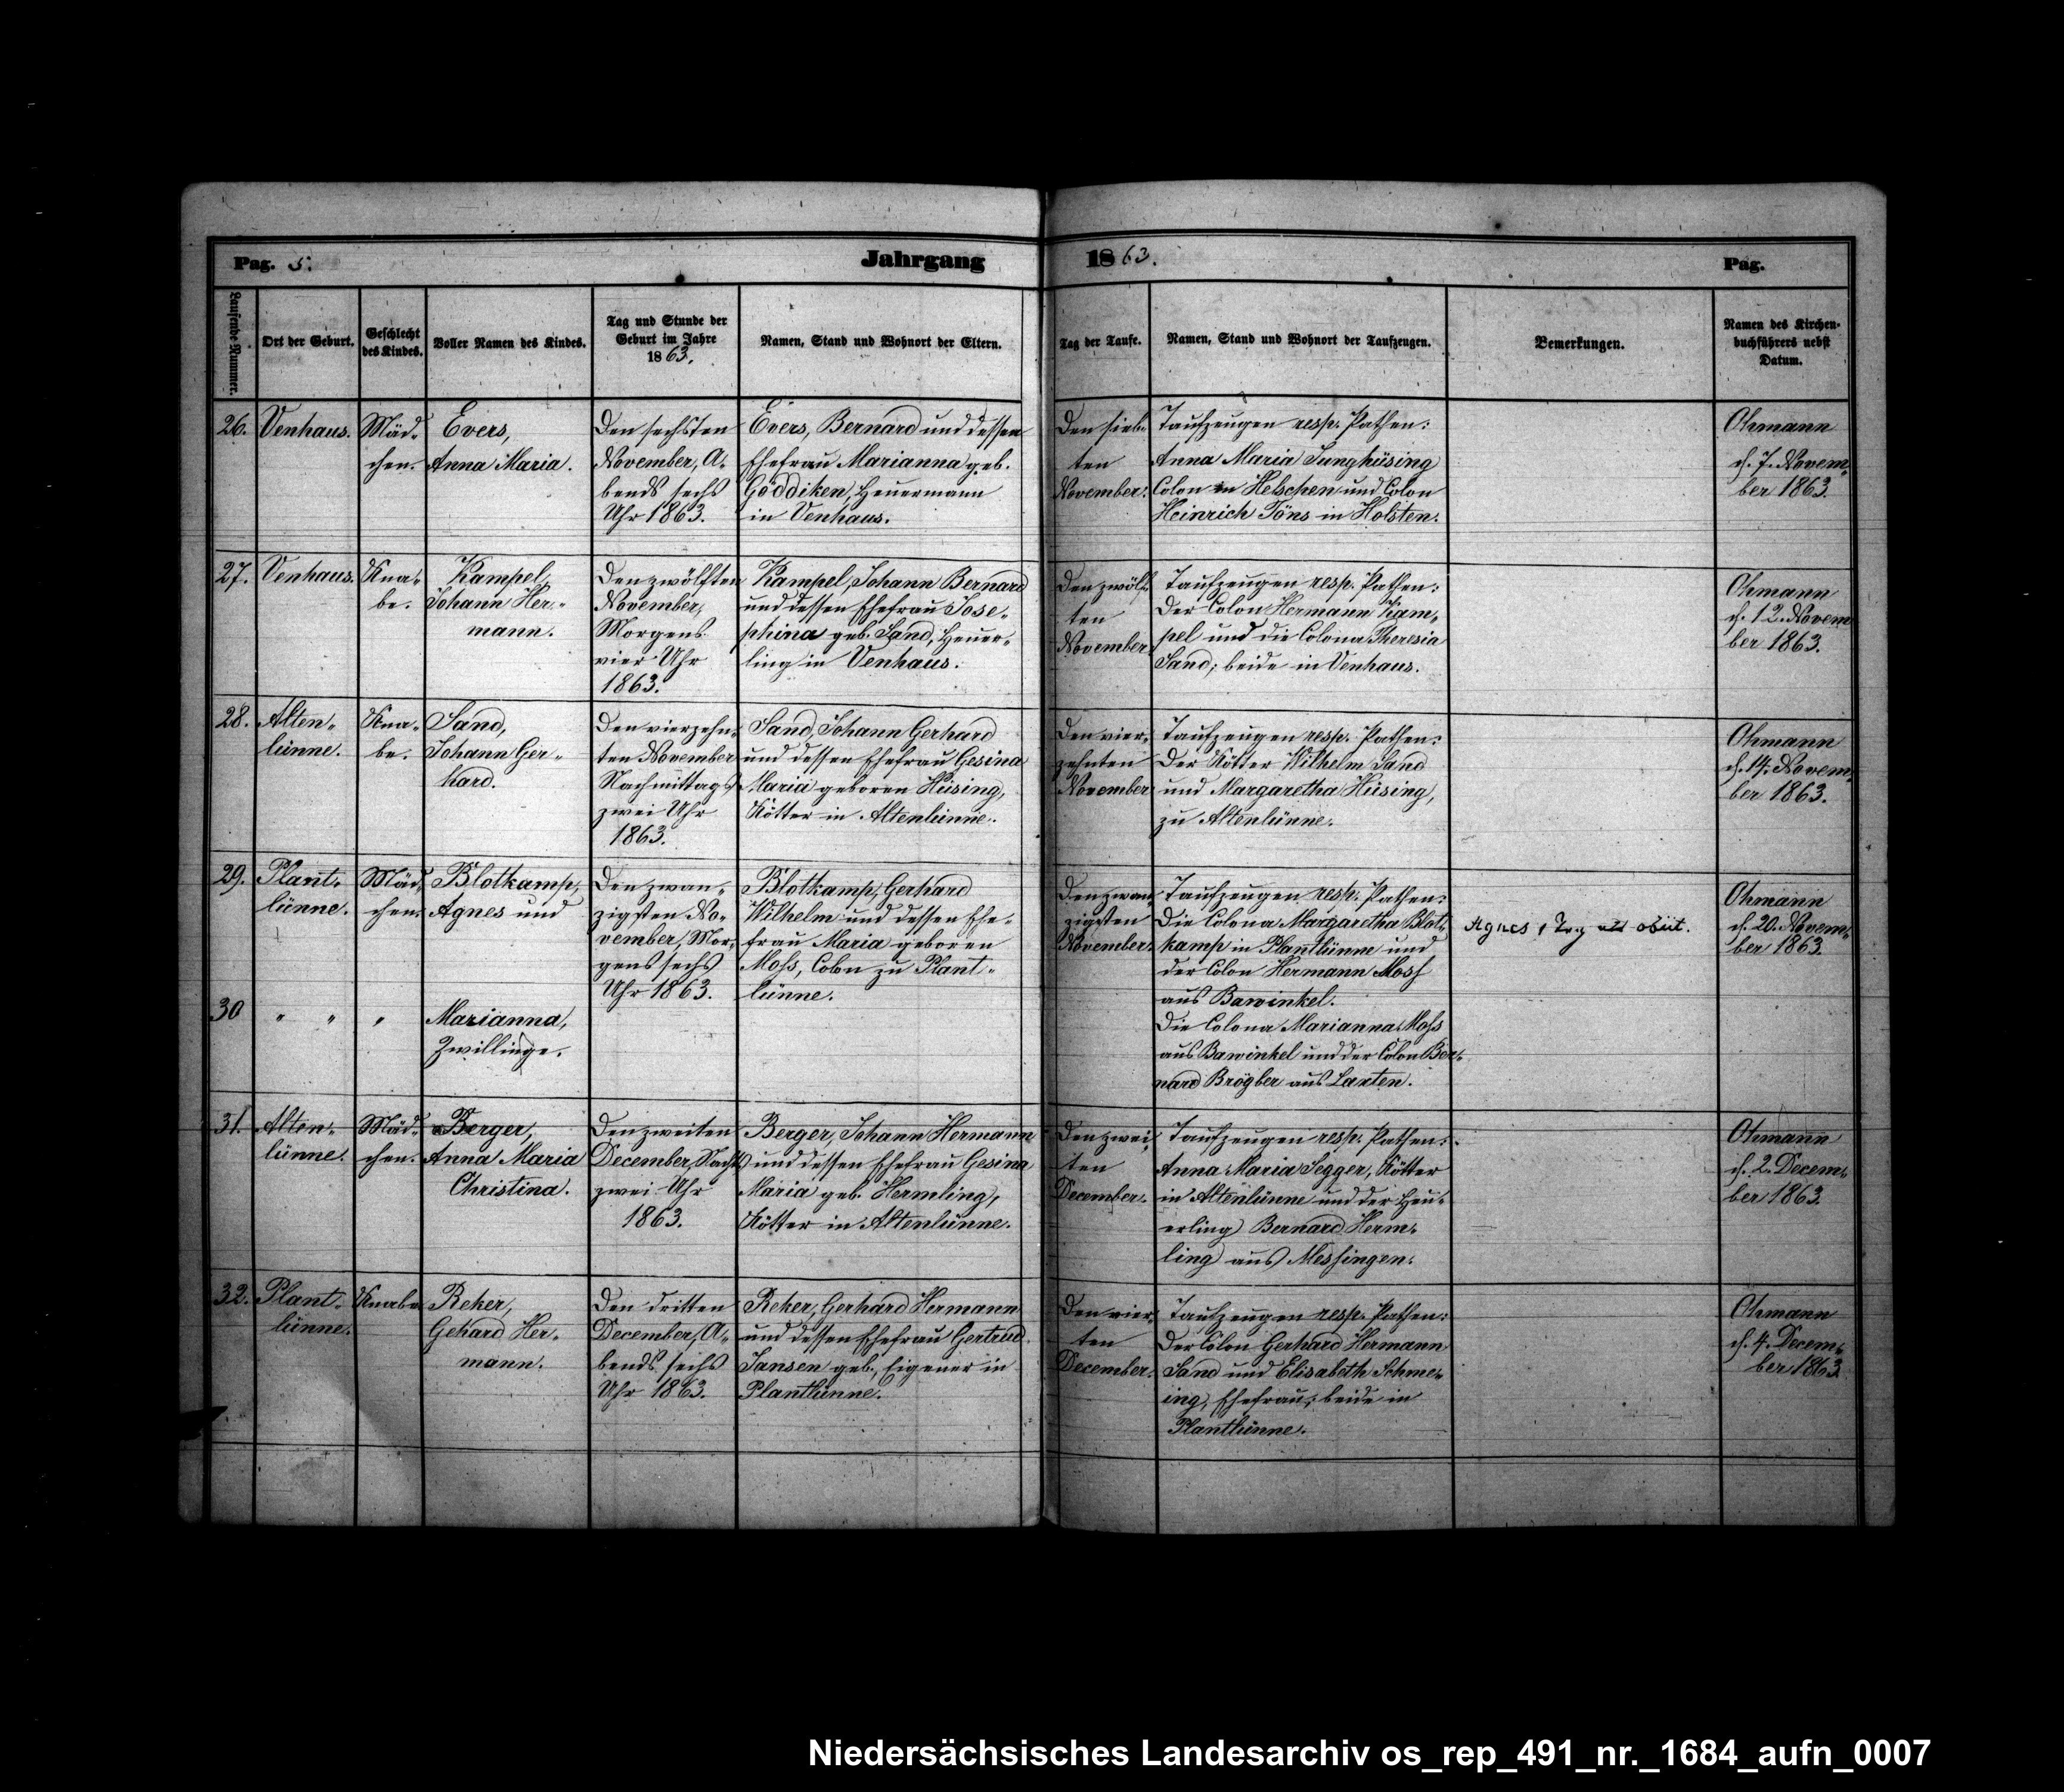 Pag. 5.
Jahrgang
1863.
Pag.
Laufende Nummer.
Ort der Geburt.
Geschlecht
des Kindes.
Voller Namen des Kindes.
Tag und Stunde der
Geburt im Jahre
1863.
Namen, Stand und Wohnort der Eltern.
Tag der Taufe.
Namen, Stand und Wohnort der Taufzeugen.
Bemerkungen.
Namen des Kirchen-
buchführers nebst
Datum.
26.
Venhaus.
Mäd-
chen.
Evers,
Anna Maria.
Den sechsten
November, A-
bends sechs
Uhr 1863.
Evers, Bernard und dessen
Ehefrau Marianna geb.
Göddiken, Heuermann
in Venhaus.
Den sieb-
ten
November.
Taufzeugen resp. Pathen:
Anna Maria Junghüsing
Colon in Helschen und Colon
Heinrich Töns in Holsten.
Ohmann
d. 7. Novem-
ber 1863.
27.
Venhaus.
Kna-
be.
Kampel,
Johann Her-
mann.
Den zwölften
November,
Morgens
vier Uhr
1863.
Kampel, Johann Bernard
und dessen Ehefrau Jose-
phina geb. Sand, Heuer-
ling in Venhaus.
Den zwölf-
ten
November
Taufzeugen resp. Pathen:
Der Colon Hermann Kam-
pel und die Colona Theresia
Sand; beide in Venhaus.
Ohmann
d. 12. Novem
ber 1863.
28.
Alten-
lünne.
Kna-
be.
Sand,
Johann Ger-
hard.
Den vierzehn-
ten November
Nachmittags
zwei Uhr
1863.
Sand, Johann Gerhard
und dessen Ehefrau Gesina
Maria geboren Hüsing,
Kötter in Altenlünne.
Den vier-
zehnten
November
Taufzeugen resp. Pathen:
Der Kötter Wilhelm Sand
und Margaretha Hüsing,
zu Altenlünne.
Ohmann
d. 14. Novem-
ber 1863.
29.
Plant-
lünne.
Mäd-
chen.
Blotkamp,
Agnes und
Den zwan-
zigsten No-
vember, Mor-
gens sechs
Uhr 1863.
Blotkamp, Gerhard
Wilhelm und dessen Ehe-
frau Maria geboren
Moss, Colon zu Plant-
lünne.
Den zwan
zigsten
November.
Taufzeugen resp. Pathen:
Die Colona Margaretha Blot-
kamp in Plantlünne und
der Colon Hermann Moss
aus Bawinkel.
Agnes, alt obiit.
Ohmann
d. 20. Novem-
ber 1863.
30
" "
"
Marianna,
Zwillinge.
Die Colona Marianna Moss
aus Bawinkel und der Colon Ber-
nard Brögber aus Laxten.
31.
Alten-
lünne.
Mäd-
chen.
Berger,
Anna Maria
Christina.
Den zweiten
December, Nachts
zwei Uhr
1863.
Berger, Johann Hermann
und dessen Ehefrau Gesina
Maria geb. Hermling,
Kötter in Altenlünne.
Den zwei
ten
December.
Taufzeugen resp. Pathen:
Anna Maria Segger, Kötter
in Altenlünne und der Heu-
erling Bernard Herm-
ling aus Messingen.
Ohmann
d. 2. Decem-
ber 1863.
32.
Plant-
lünne.
Knabe
Reker,
Gehard Her-
mann.
Den dritten
December, A-
bends sechs
Uhr 1863.
Reker, Gerhard Hermann
und dessen Ehefrau Gertrud
Jansen geb., Eigener in
Plantlünne.
Den vier-
ten
December.
Taufzeugen resp. Pathen:
Der Colon Gerhard Hermann
Sand und Elisabeth Schme-
ing, Ehefrau; beide in
Plantlünne.
Ohmann
d. 4. Decem-
ber 1863
Niedersächsisches Landesarchiv os_rep_491_nr._1684_aufn_0007